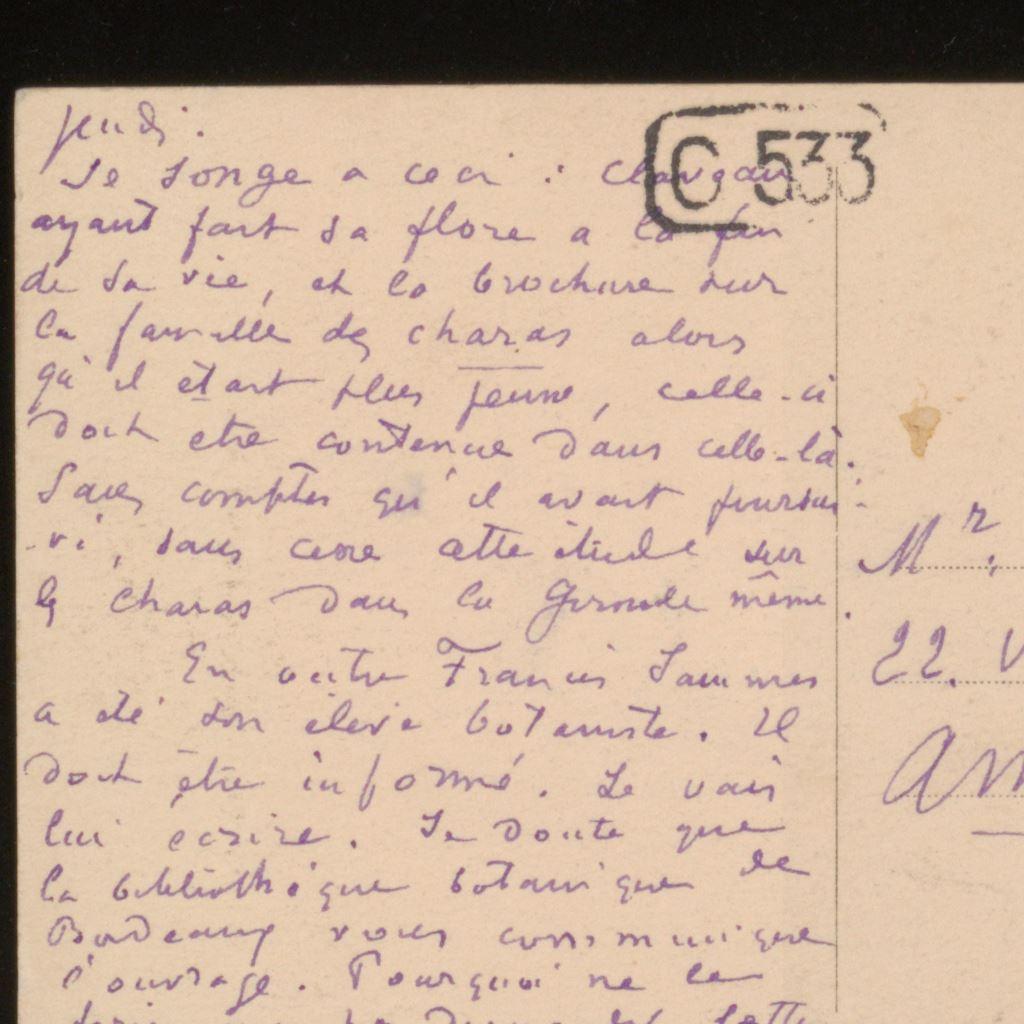 jeudi.
Je songe a ceci : Claveau
ayant fait sa flore a la fin
de sa vie, et la brochure sur
la famille des charas alors
qu'il était plus jeune, celle-ci
doit etre contenue dans celle-là.
Sans compter qu'il avait poursui-
-vi, sans cesse cette étude sur
les charas dans la Gironde même.
En outre Francis Jammes
a été son éleve botaniste. Il
doit être informé. Je vais
lui écrire. Je doute que
la bibliothèque botanique de
Bordeaux vous communique
l'ouvrage. Pourquoi ne la
C 533
Mr.
22. V
Am